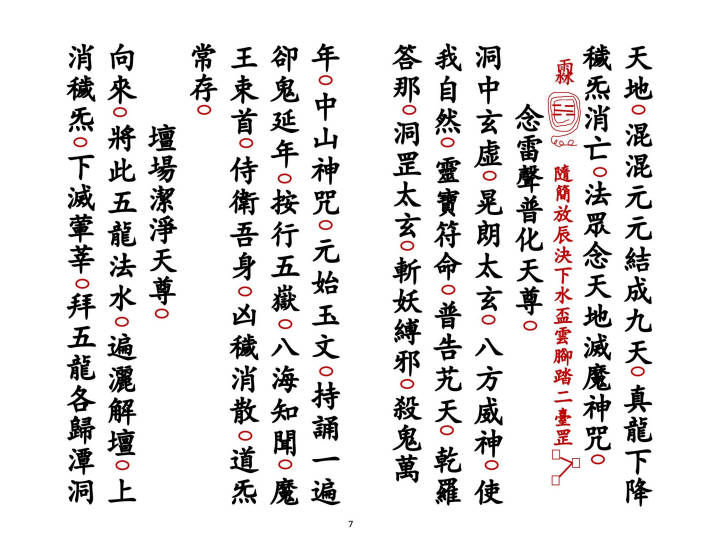 天地。混混元元結成九天。真龍下降
穢炁消亡。法眾念天地滅魔神咒。
隨簡放辰決下水盃雲腳踏二臺罡
念雷聲普化天尊。
洞中玄虛。晃朗太玄。八方威神。使
我自然。靈寶符命。普告艽天。乾羅
答那。洞罡太玄。斬妖縛邪。殺鬼萬
年。中山神咒。元始玉文。持誦一遍
卻鬼延年。按行五嶽。八海知聞。魔
王束首。侍衛吾身。凶穢消散。道炁
常存。
壇場潔淨天尊。
向來。將此五龍法水。遍灑解壇。上
消穢炁。下滅葷莘。拜五龍各歸潭洞
7